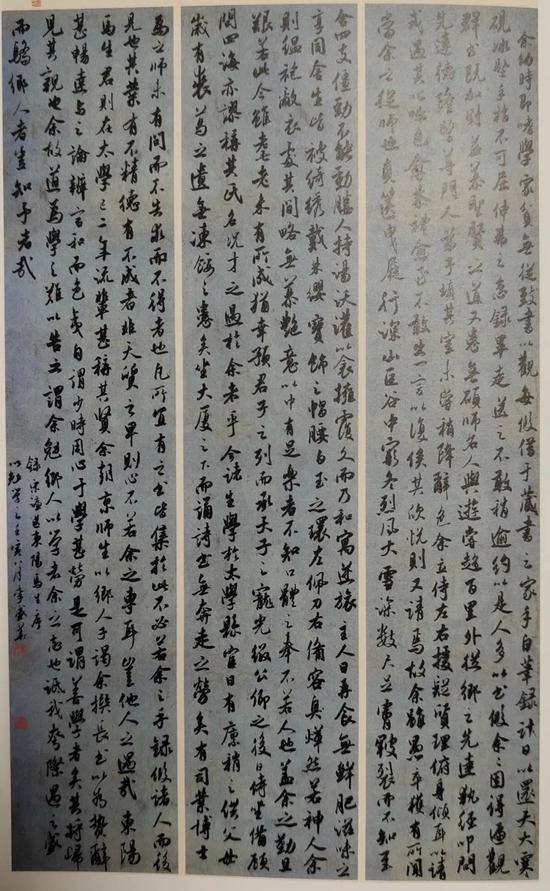 余幼時即嗜學家貧無從致書以觀每假借于藏書之家手自筆錄計日以還天大寒
硯冰堅手指不可屈伸弗之怠錄畢走送之不敢稍逾約以是人多以書假余余因得遍觀
群書既加冠益慕聖賢之道又患無碩師名人與遊嘗趨百里外從鄉之先達執經叩問
先達德隆望尊門人弟子填其室未嘗稍降辭色余立侍左右援疑質理俯身傾耳以請
或遇其叱咄色愈恭禮愈至不敢出一言以復俟其欣悅則又請焉故余雖愚卒獲有所聞
當余之從師也負篋曳屣行深山巨谷中窮冬烈風大雪深數尺足膚皸裂而不知至
舍四支僵勁不能動媵人持湯沃灌以衾擁覆久而乃和寓逆旅主人日再食無鮮肥滋味之
享同舍生皆被綺繡戴朱纓寶飾之帽腰白玉之環左佩刀右備容臭燁然若神人余
則縕袍敝衣處其間略無慕艷意以中有足樂者不知口體之奉不若人也蓋余之勤且
艱若此今雖耄老未有所成猶幸預君子之列而承天子之寵光綴公卿之後日侍坐備顧
問四海亦謬稱其氏名況才之過於余者乎今諸生學於太學縣官日有廩稍之供父母
歲有裘葛之遺無凍餒之患矣坐大廈之下而誦詩書無奔走之勞矣有司業博士
為之師未有問而不告求而不得者也凡所宜有之書皆集於此不必若余之手錄假諸人而後
見也其業有不精德有不成者非天質之卑則心不若余之專耳豈他人之過哉東陽
馬生君則在太學已二年流輩甚稱其賢余朝京師生以鄉人子謁余撰長書以為贄辭
甚暢達與之論辨言和而色夷自謂少時用心于學甚勞是可謂善學者矣其將歸
見其親也余故道為學之難以告之謂余勉鄉人以學者余之志也詆我夸際遇之盛
而驕鄉人者豈知予者哉
錄宋濂送東陽馬生序
以勉學之壬寅八月